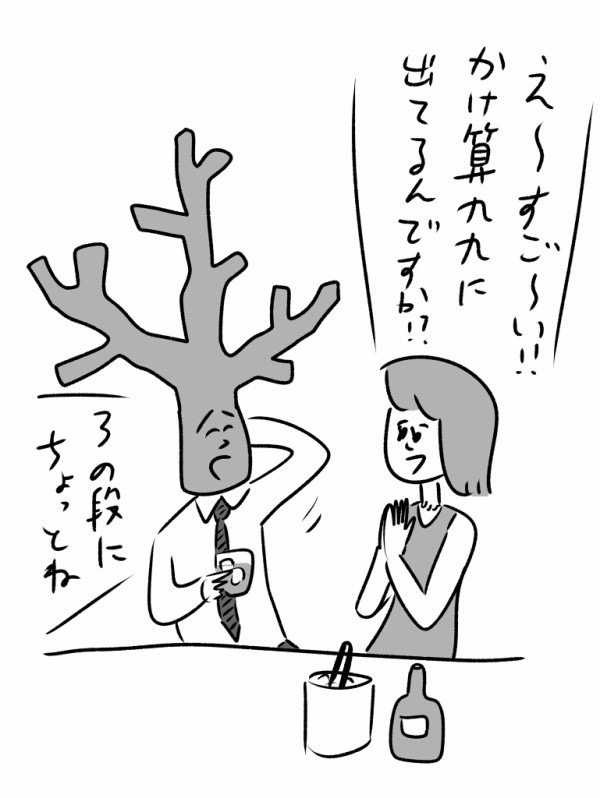 え〜すご〜い!!
かけ算九九に
出てるんですか!?
3の段に
ちょっとね